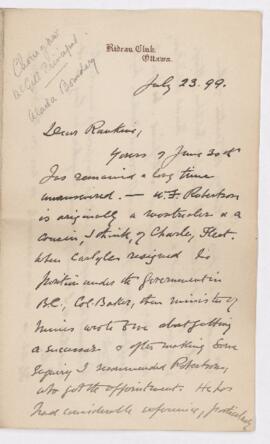 Rideau Club,
Ottawa.
McGill Principal
Alaska Boundary
July 23. 99.
Dear Rankine,
Yours of June 30th
has remained a long time
unanswered. — W. F. Robertson
is originally a Montrealer & a
cousin, I think, of Charley Fleet.
When Carlyle resigned his
position under the Government in
B.C., Col. Baker, then minister of
Mines wrote to me about getting
a successor & after making some
inquiry I recommended Robertson,
who got the appointment. He has
had considerable experience, particularly